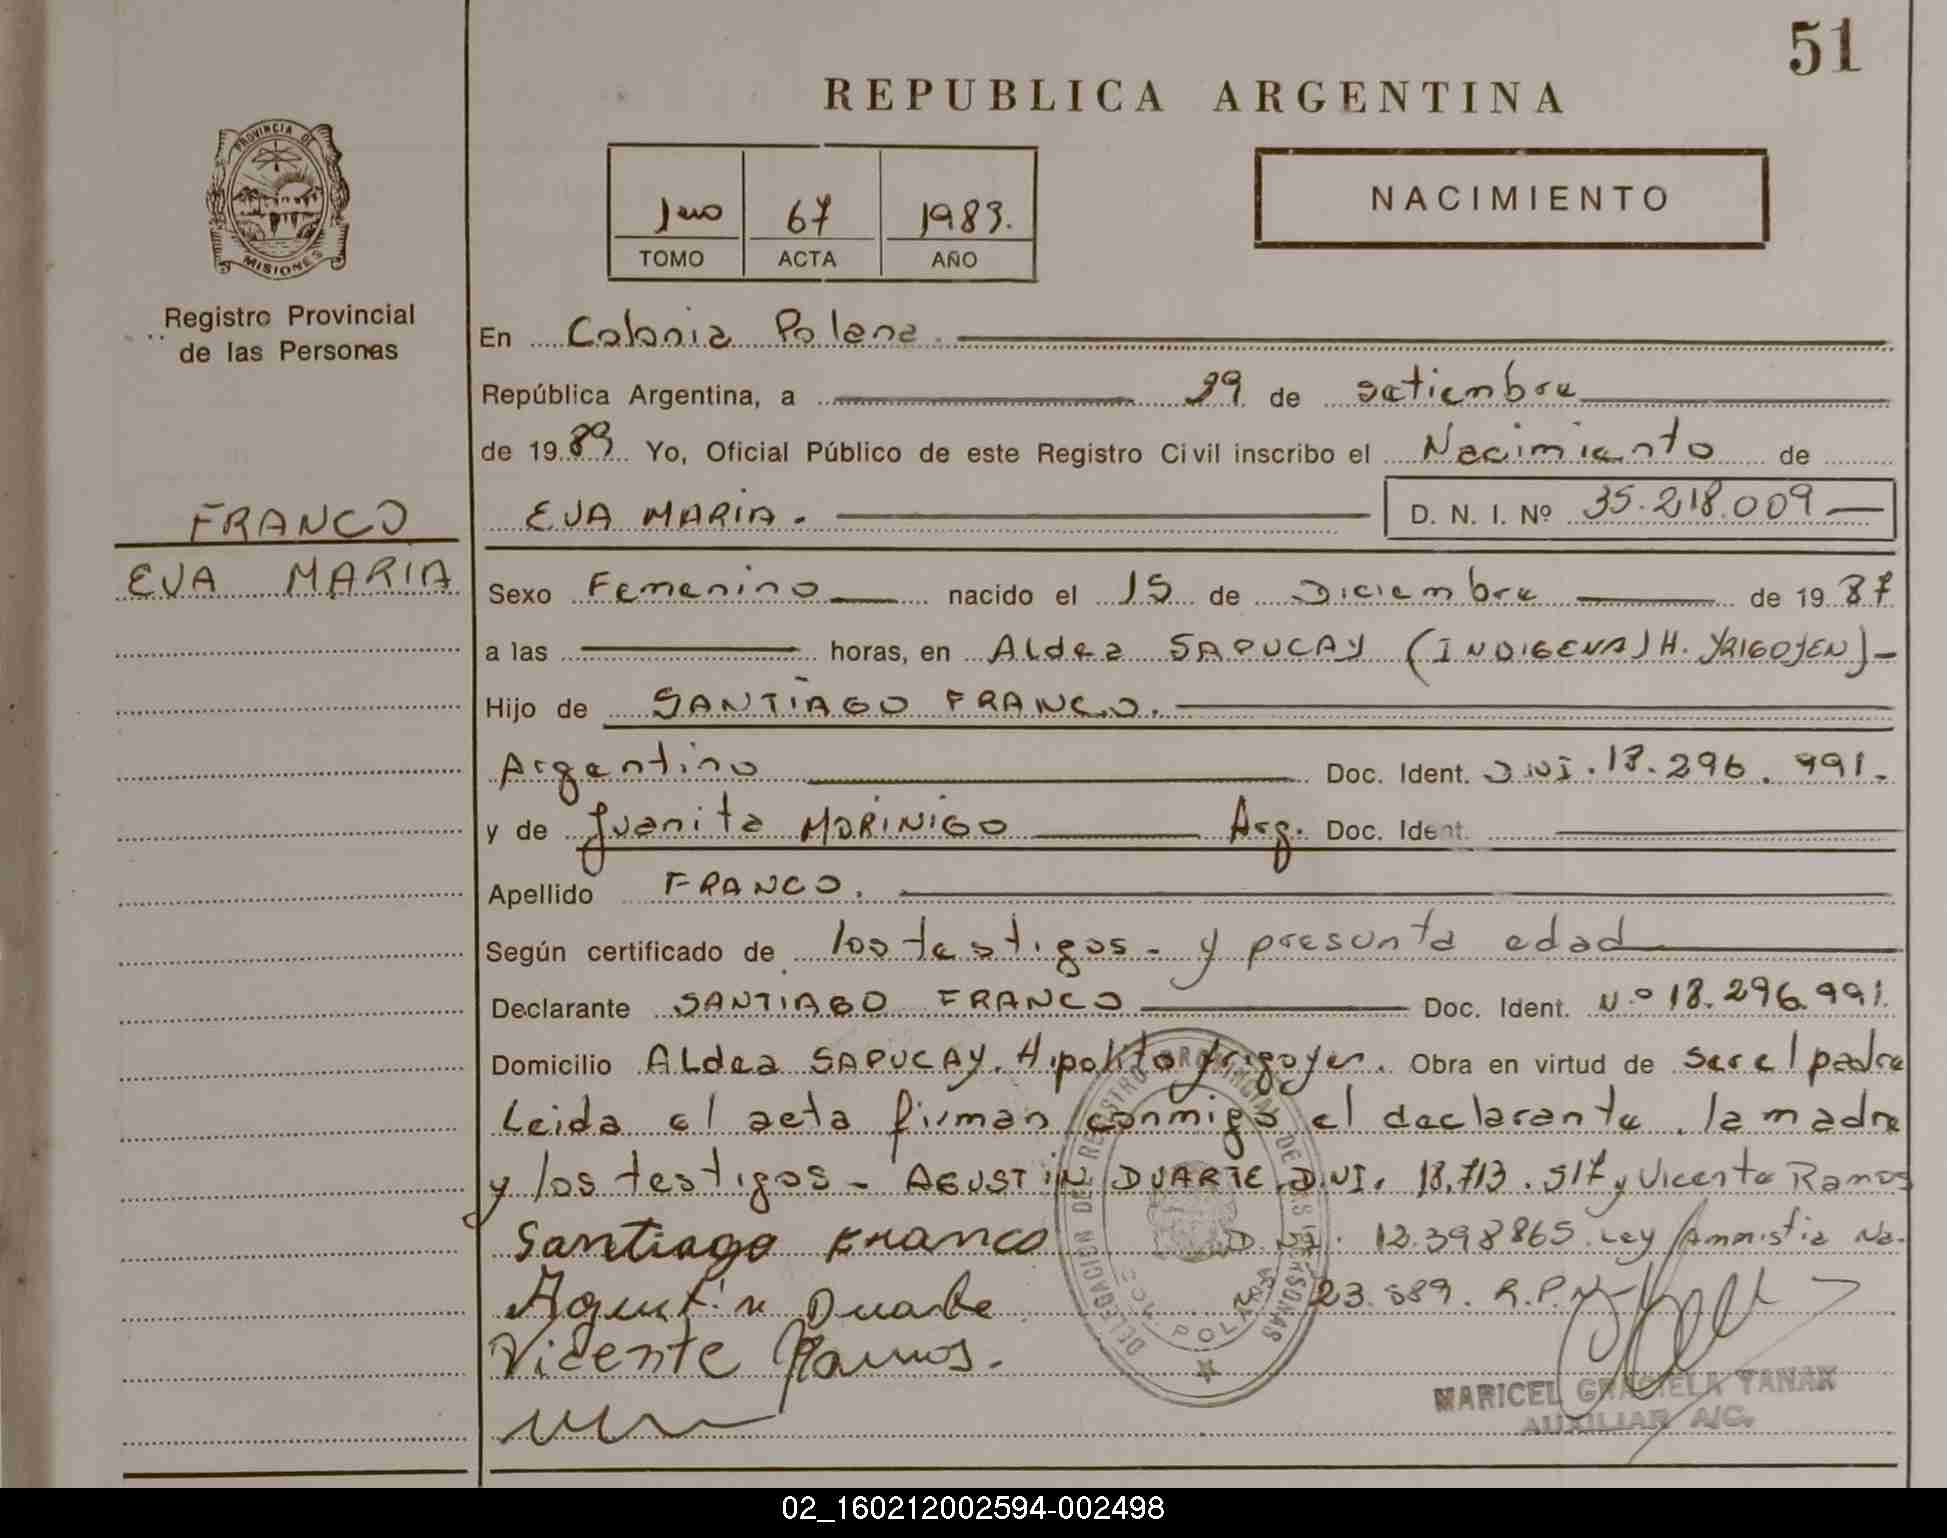 51
REPUBLICA ARGENTINA
PROVINCIA DE
MISIONES
1ero 67 1989.
TOMO ACTA AÑO
NACIMIENTO
Registro Provincial
de las Personas
En Colonia Polana.
República Argentina, a 29 de setiembre
de 1989 Yo, Oficial Público de este Registro Civil inscribo el Nacimiento de
FRANCO
EVA MARIA. D. N. I. Nº 35.218.009
EVA MARIA
Sexo Femenino nacido el 15 de Diciembre de 1987
a las horas, en Aldea SAPUCAY (INDIGENA) H. YRIGOYEN)
Hijo de SANTIAGO FRANCO.
Argentino Doc. Ident. DNI. 18.296.991.
y de Juanita MORINIGO Arg. Doc. Ident.
Apellido FRANCO.
Según certificado de los testigos - y presunta edad
Declarante SANTIAGO FRANCO Doc. Ident. N.º 18.296.991.
Domicilio Aldea SAPUCAY. Hipolito Yrigoyen. Obra en virtud de ser el padre
Leida el acta firman conmigo el declarante, la madre
y los testigos - AGUSTIN DUARTE D.NI. 18.713.517 y Vicente Ramos
Santiago Franco D.NI. 12.398865. Ley Ammistia No.
Agustin Duarte 23.589. R.P.N
Vicente Ramos.
DELEGACION DEL REGISTRO PROVINCIAL DE LAS PERSONAS
COL. POLANA
MARICEL GRACIELA TANAK
AUXILIAR A/C.
02_160212002594-002498